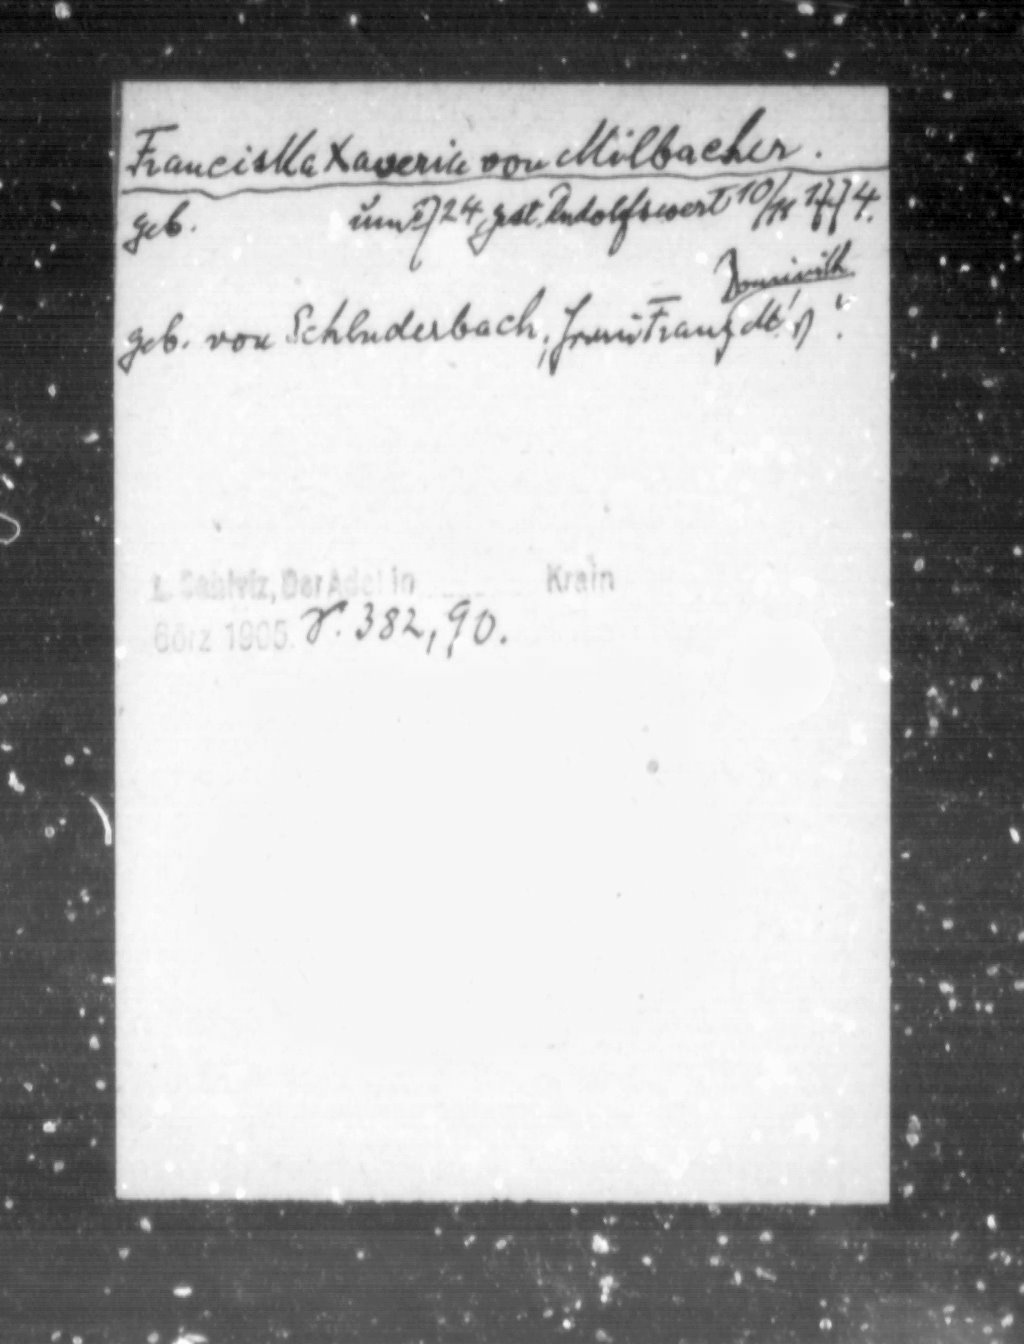 Franciska Xaveria von Milbacher.
geb. um 1724, gest. Rudolfswert 10/11 1774.
Dominik
geb. von Schluderbach, Franz
L. Schiviz, Der Adel in Krain
Görz 1905. S. 382, 90.